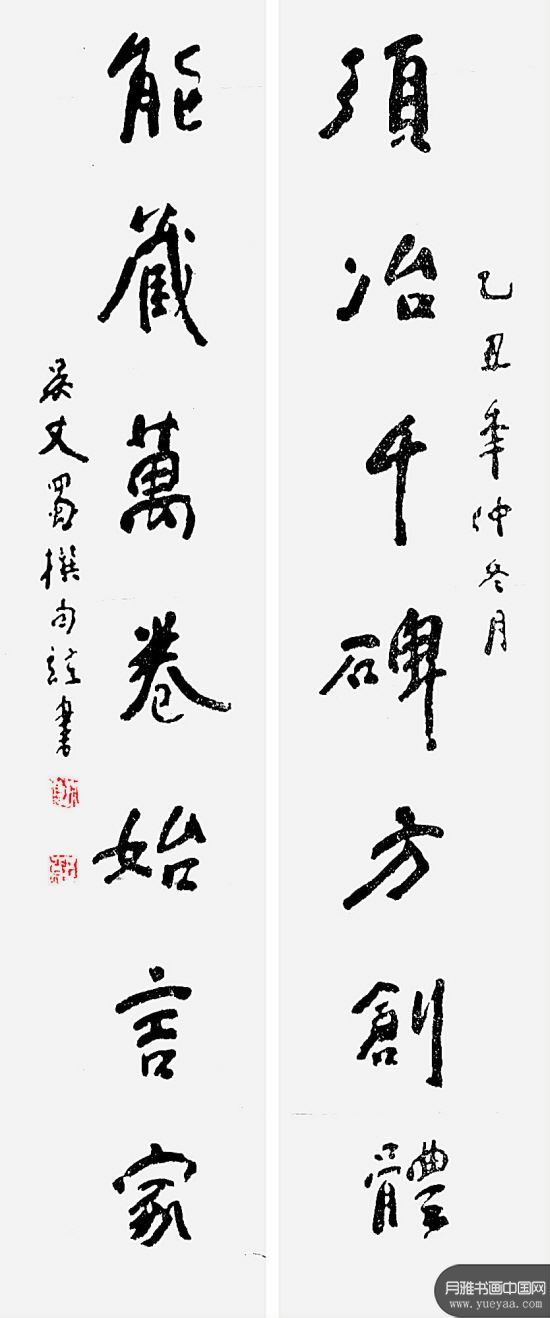 乙丑年仲冬月
須冶千碑方創體
能藏萬卷始言家
吴丈蜀撰句並書
月雅书画中国网
www.yueyaa.com